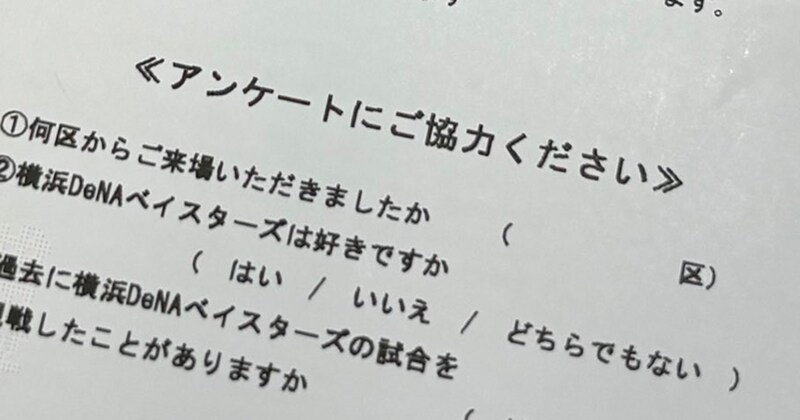 ます。
≪アンケートにご協力ください≫
①何区からご来場いただきましたか ( 区)
②横浜DeNAベイスターズは好きですか
( はい / いいえ / どちらでもない )
過去に横浜DeNAベイスターズの試合を
戦したことがありますか
(